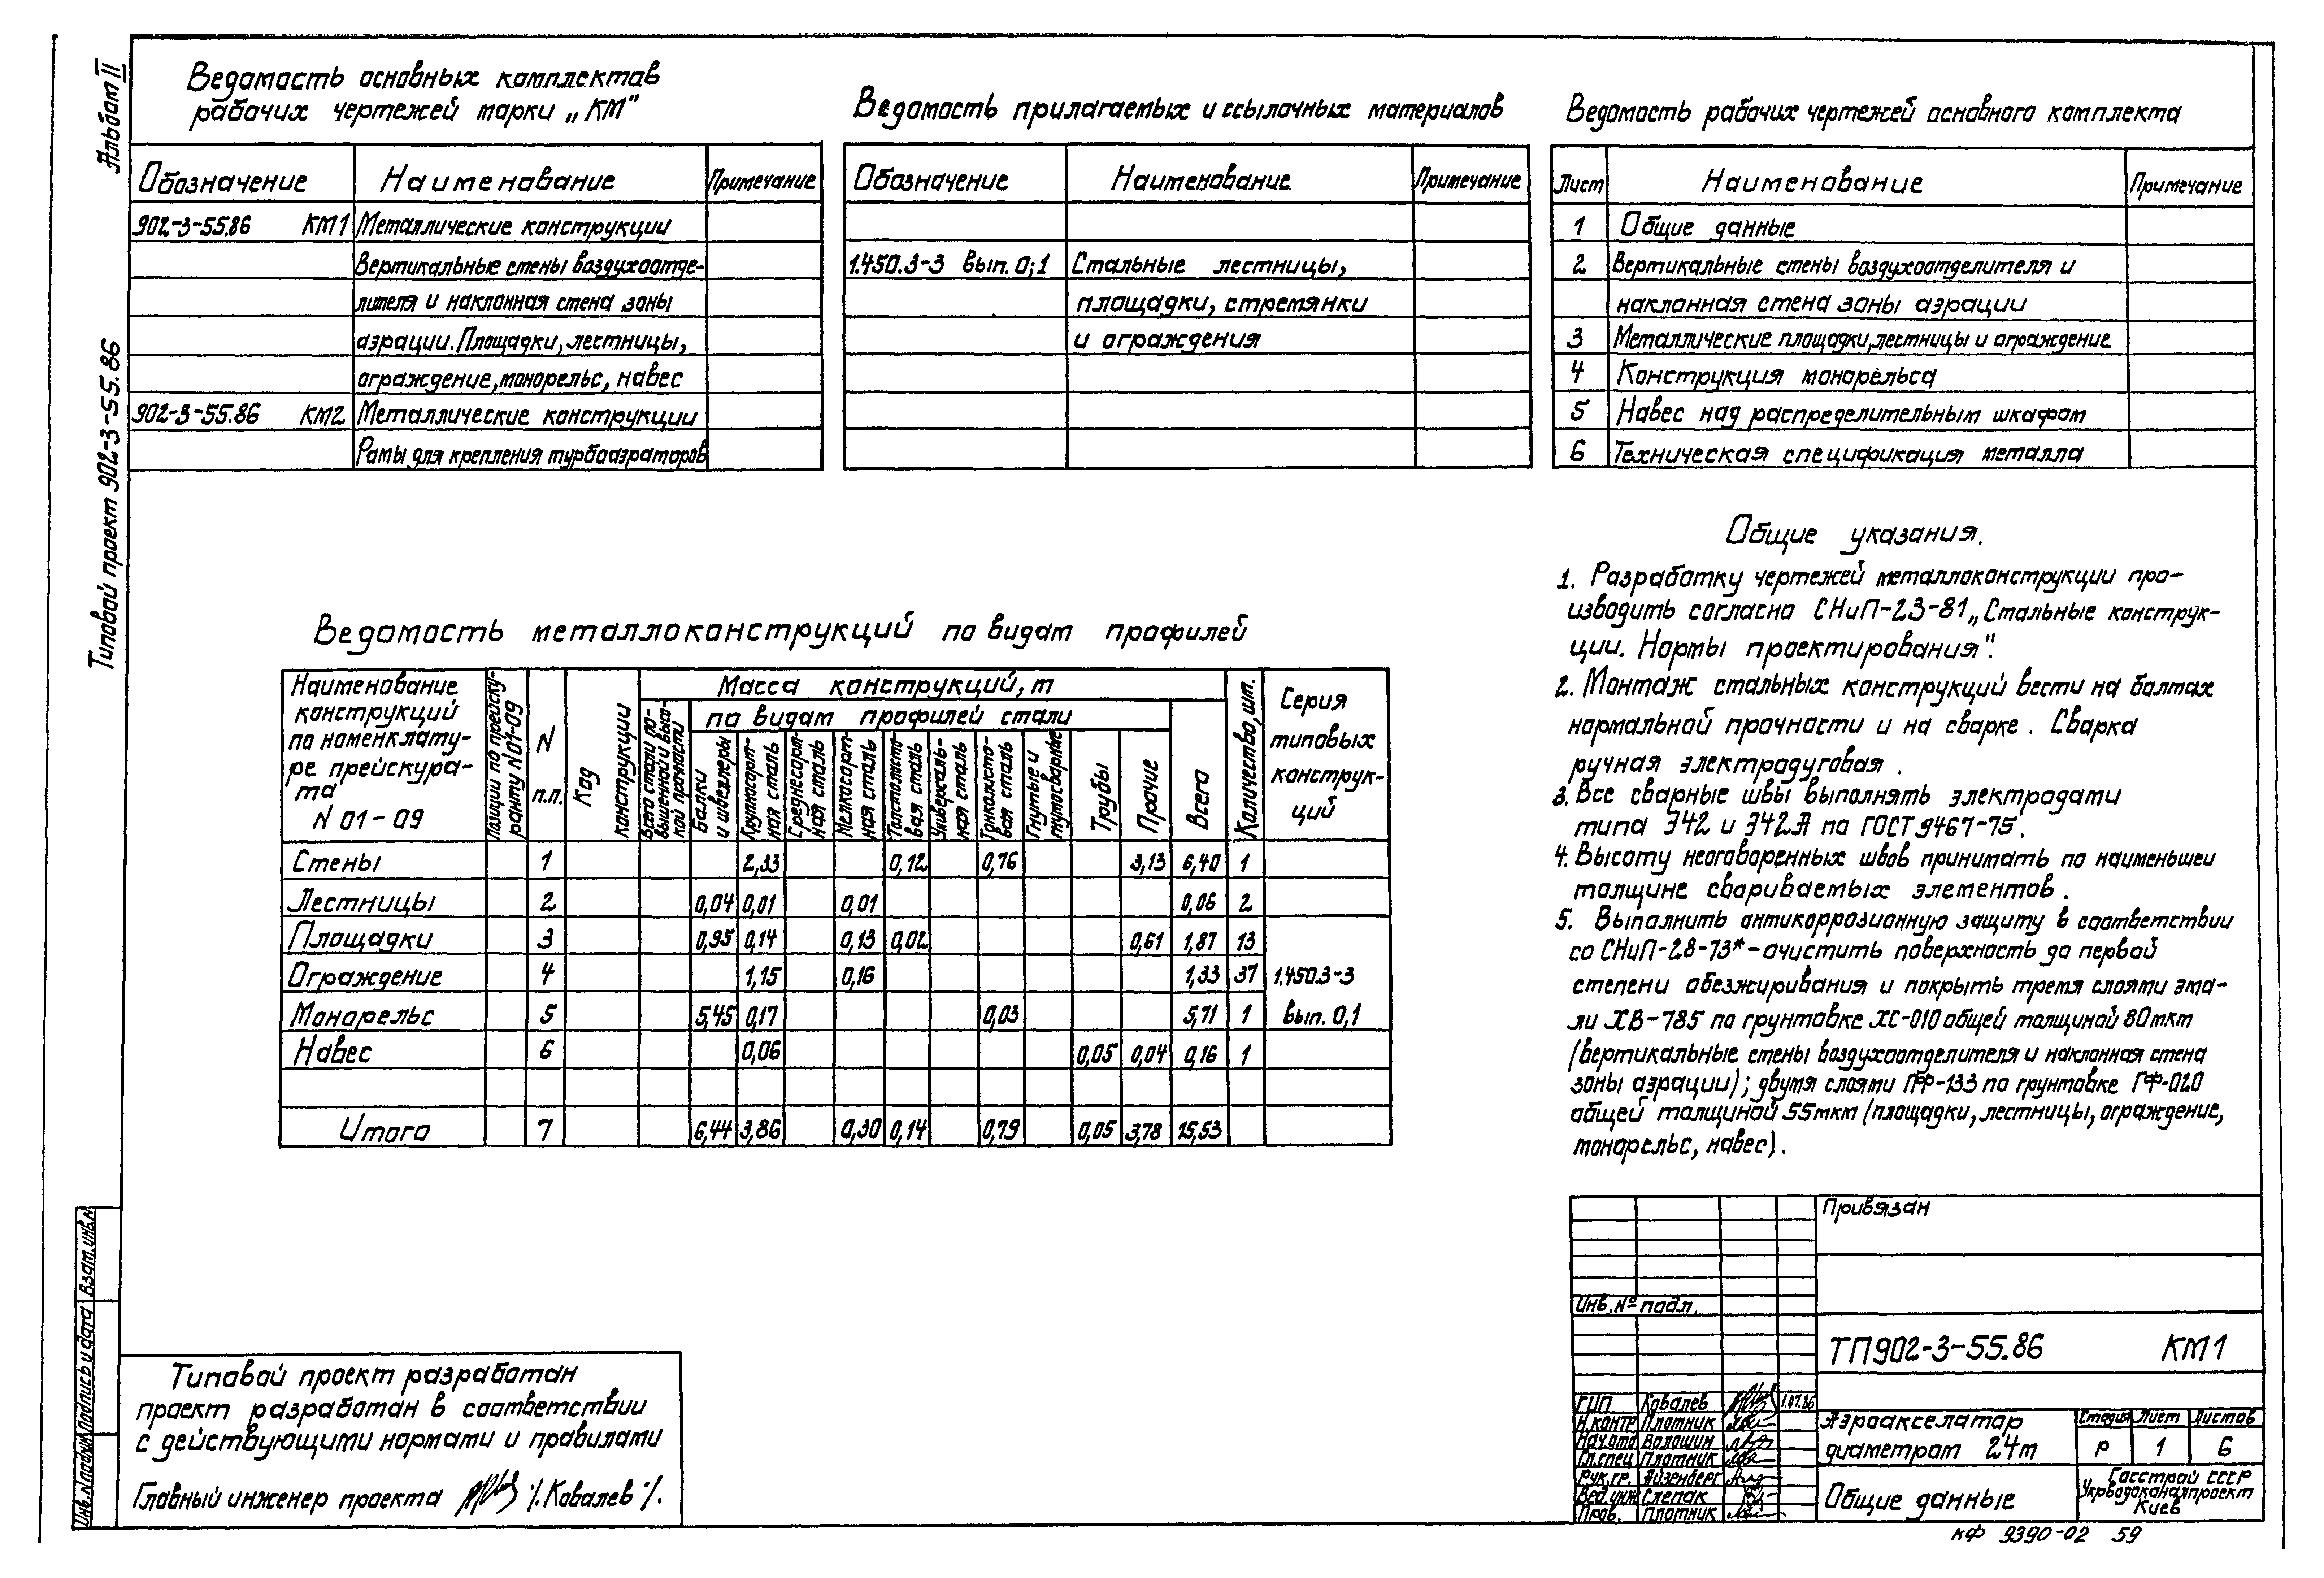 Альбом II
Типовой проект 902-3-55.86
Ведомость основных комплектов
рабочих чертежей марки „КМ"
Обозначение Наименование Примечание
902-3-55.86 КМ1 Металлические конструкции
Вертикальные стены воздухоотде-
лителя и наклонная стена зоны
аэрации. Площадки, лестницы,
ограждение, монорельс, навес
902-3-55.86 КМ2 Металлические конструкции
Рамы для крепления турбоаэраторов
Ведомость прилагаемых и ссылочных материалов
Обозначение Наименование Примечание
1.450.3-3 вып. 0;1 Стальные лестницы,
площадки, стремянки
и ограждения
Ведомость рабочих чертежей основного комплекта
Лист Наименование Примечание
1 Общие данные
2 Вертикальные стены воздухоотделителя и
наклонная стена зоны аэрации
3 Металлические площадки, лестницы и ограждение
4 Конструкция монорельса
5 Навес над распределительным шкафом
6 Техническая спецификация металла
Ведомость металлоконструкций по видам профилей
Наименование
конструкций
по номенклату-
ре прейскура-
та
N 01-09
Позиции по прейску-
ранту N01-09
N
п.п.
Код
конструкции
Масса конструкций, т
Всего стали по-
вышенной и высо-
кой прочности
по видам профилей стали
Балки
и швеллеры
Крупносорт-
ная сталь
Среднесорт-
ная сталь
Мелкосорт-
ная сталь
Толстолисто-
вая сталь
Универсаль-
ная сталь
Тонколисто-
вая сталь
Гнутые и
гнутосварные
Трубы
Прочие
Всего
Количество, шт.
Серия
типовых
конструк-
ций
Стены 1 2,33 0,12 0,76 3,13 6,40 1
Лестницы 2 0,04 0,01 0,01 0,06 2
Площадки 3 0,95 0,14 0,13 0,02 0,61 1,87 13
Ограждение 4 1,15 0,16 1,33 37 1.450.3-3
Монорельс 5 5,45 0,17 0,03 5,71 1 вып. 0,1
Навес 6 0,06 0,05 0,04 0,16 1
Итого 7 6,44 3,86 0,30 0,14 0,79 0,05 3,78 15,53
Общие указания.
1. Разработку чертежей металлоконструкции про-
изводить согласно СНиП-23-81 „Стальные конструк-
ции. Нормы проектирования".
2. Монтаж стальных конструкций вести на болтах
нормальной прочности и на сварке. Сварка
ручная электродуговая.
3. Все сварные швы выполнять электродами
типа Э42 и Э42А по ГОСТ 9467-75.
4. Высоту неоговоренных швов принимать по наименьшей
толщине свариваемых элементов.
5. Выполнить антикоррозионную защиту в соответствии
со СНиП-28-73*-очистить поверхность до первой
степени обезжиривания и покрыть тремя слоями эма-
ли ХВ-785 по грунтовке ХС-010 общей толщиной 80мкм
(вертикальные стены воздухоотделителя и наклонная стена
зоны аэрации); двумя слоями ПФ-133 по грунтовке ГФ-020
общей толщиной 55мкм (площадки, лестницы, ограждение,
монорельс, навес).
Привязан
Инв. № подл.
ТП902-3-55.86 КМ1
ГИП Ковалев 1.07.86
Н.контр Плотник
Нач.отд Волошин
Гл.спец Плотник
Рук.гр. Айзенберг
Вед.инж Слепак
Пров. Плотник
Аэроакселатор
диаметром 24м
Стадия Лист Листов
Р 1 6
Общие данные
Госстрой СССР
Укрводоканалпроект
Киев
КФ 9390-02 59
Взам.инв.N
Подпись и дата
Инв.N подлин
Типовой проект разработан
проект разработан в соответствии
с действующими нормами и правилами
Главный инженер проекта /.Ковалев/.